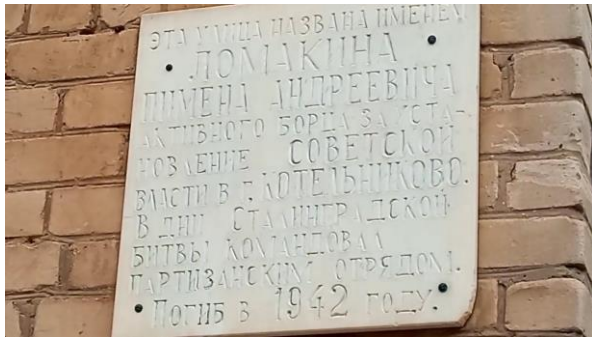 ЭТА УЛИЦА НАЗВАНА ИМЕНЕМ
ЛОМАКИНА
ПИМЕНА АНДРЕЕВИЧА
АКТИВНОГО БОРЦА ЗА УСТА-
НОВЛЕНИЕ СОВЕТСКОЙ
ВЛАСТИ В Г. КОТЕЛЬНИКОВО.
В ДНИ СТАЛИНГРАДСКОЙ
БИТВЫ КОМАНДОВАЛ
ПАРТИЗАНСКИМ ОТРЯДОМ.
ПОГИБ В 1942 ГОДУ.